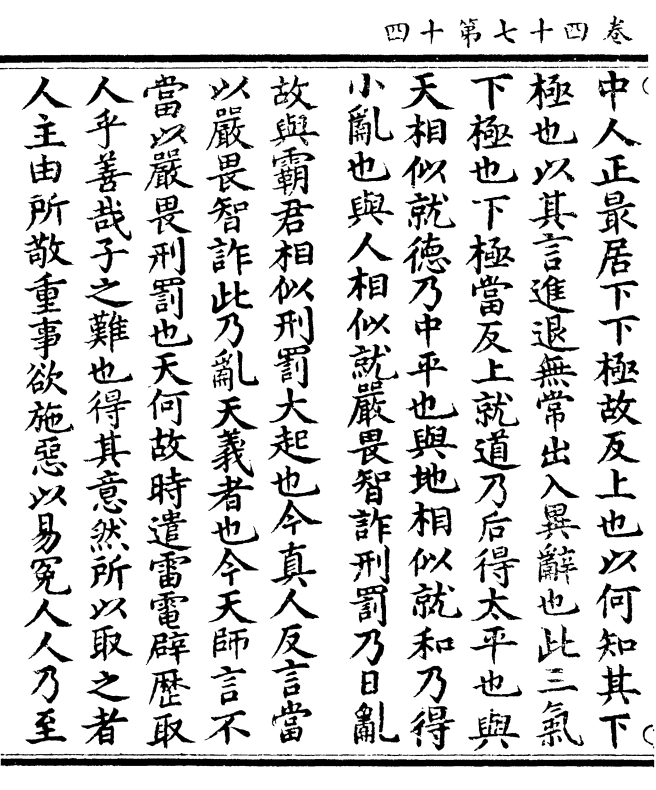 卷四十七第十四
中人正最居下下極故反上也以何知其下
極也以其言進退無常出入異辭也此三氣
下極也下極當反上就道乃后得太平也與
天相似就德乃中平也與地相似就和乃得
小亂也與人相似就嚴畏智詐刑罰乃日亂
故與霸君相似刑罰大起也今真人反言當
以嚴畏智詐此乃亂天義者也今天師言不
當以嚴畏刑罰也天何故時遣雷電辟歷取
人乎善哉子之難也得其意然所以取之者
人主由所敬重事欲施惡以易冤人人乃至